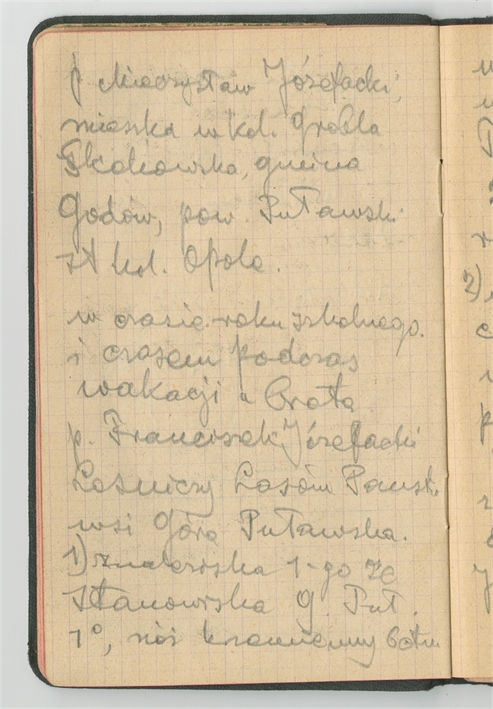 p Mieczysław Józefacki,
mieszka w kol. Grobla
Skokowska, gmina
Godów, pow. Puławski
st kol. Opole.
w czasie roku szkolnego.
i czasem podczas
wakacji u brata
p. Franciszek Józefacki
Leśniczy Lasów Państ.
wsi Góra Puławska.
1) znalezisko 1-go ze
stanowiska G. Puł.
1°, nóż krzemienny
2)